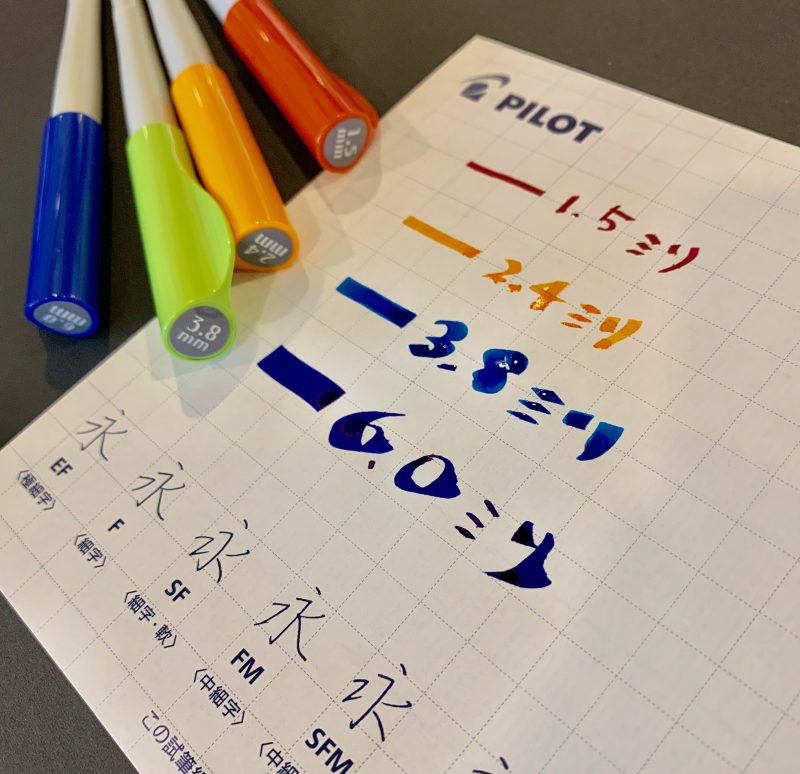 1.5
mm
2.4
mm
3.8
mm
6.0
mm
PILOT
1.5ミリ
2.4ミリ
3.8ミリ
6.0ミリ
永 永 永 永 永
EF F SF FM SFM
〈極細字〉 〈細字〉 〈細字・軟〉 〈中細字〉 〈中細
この試筆